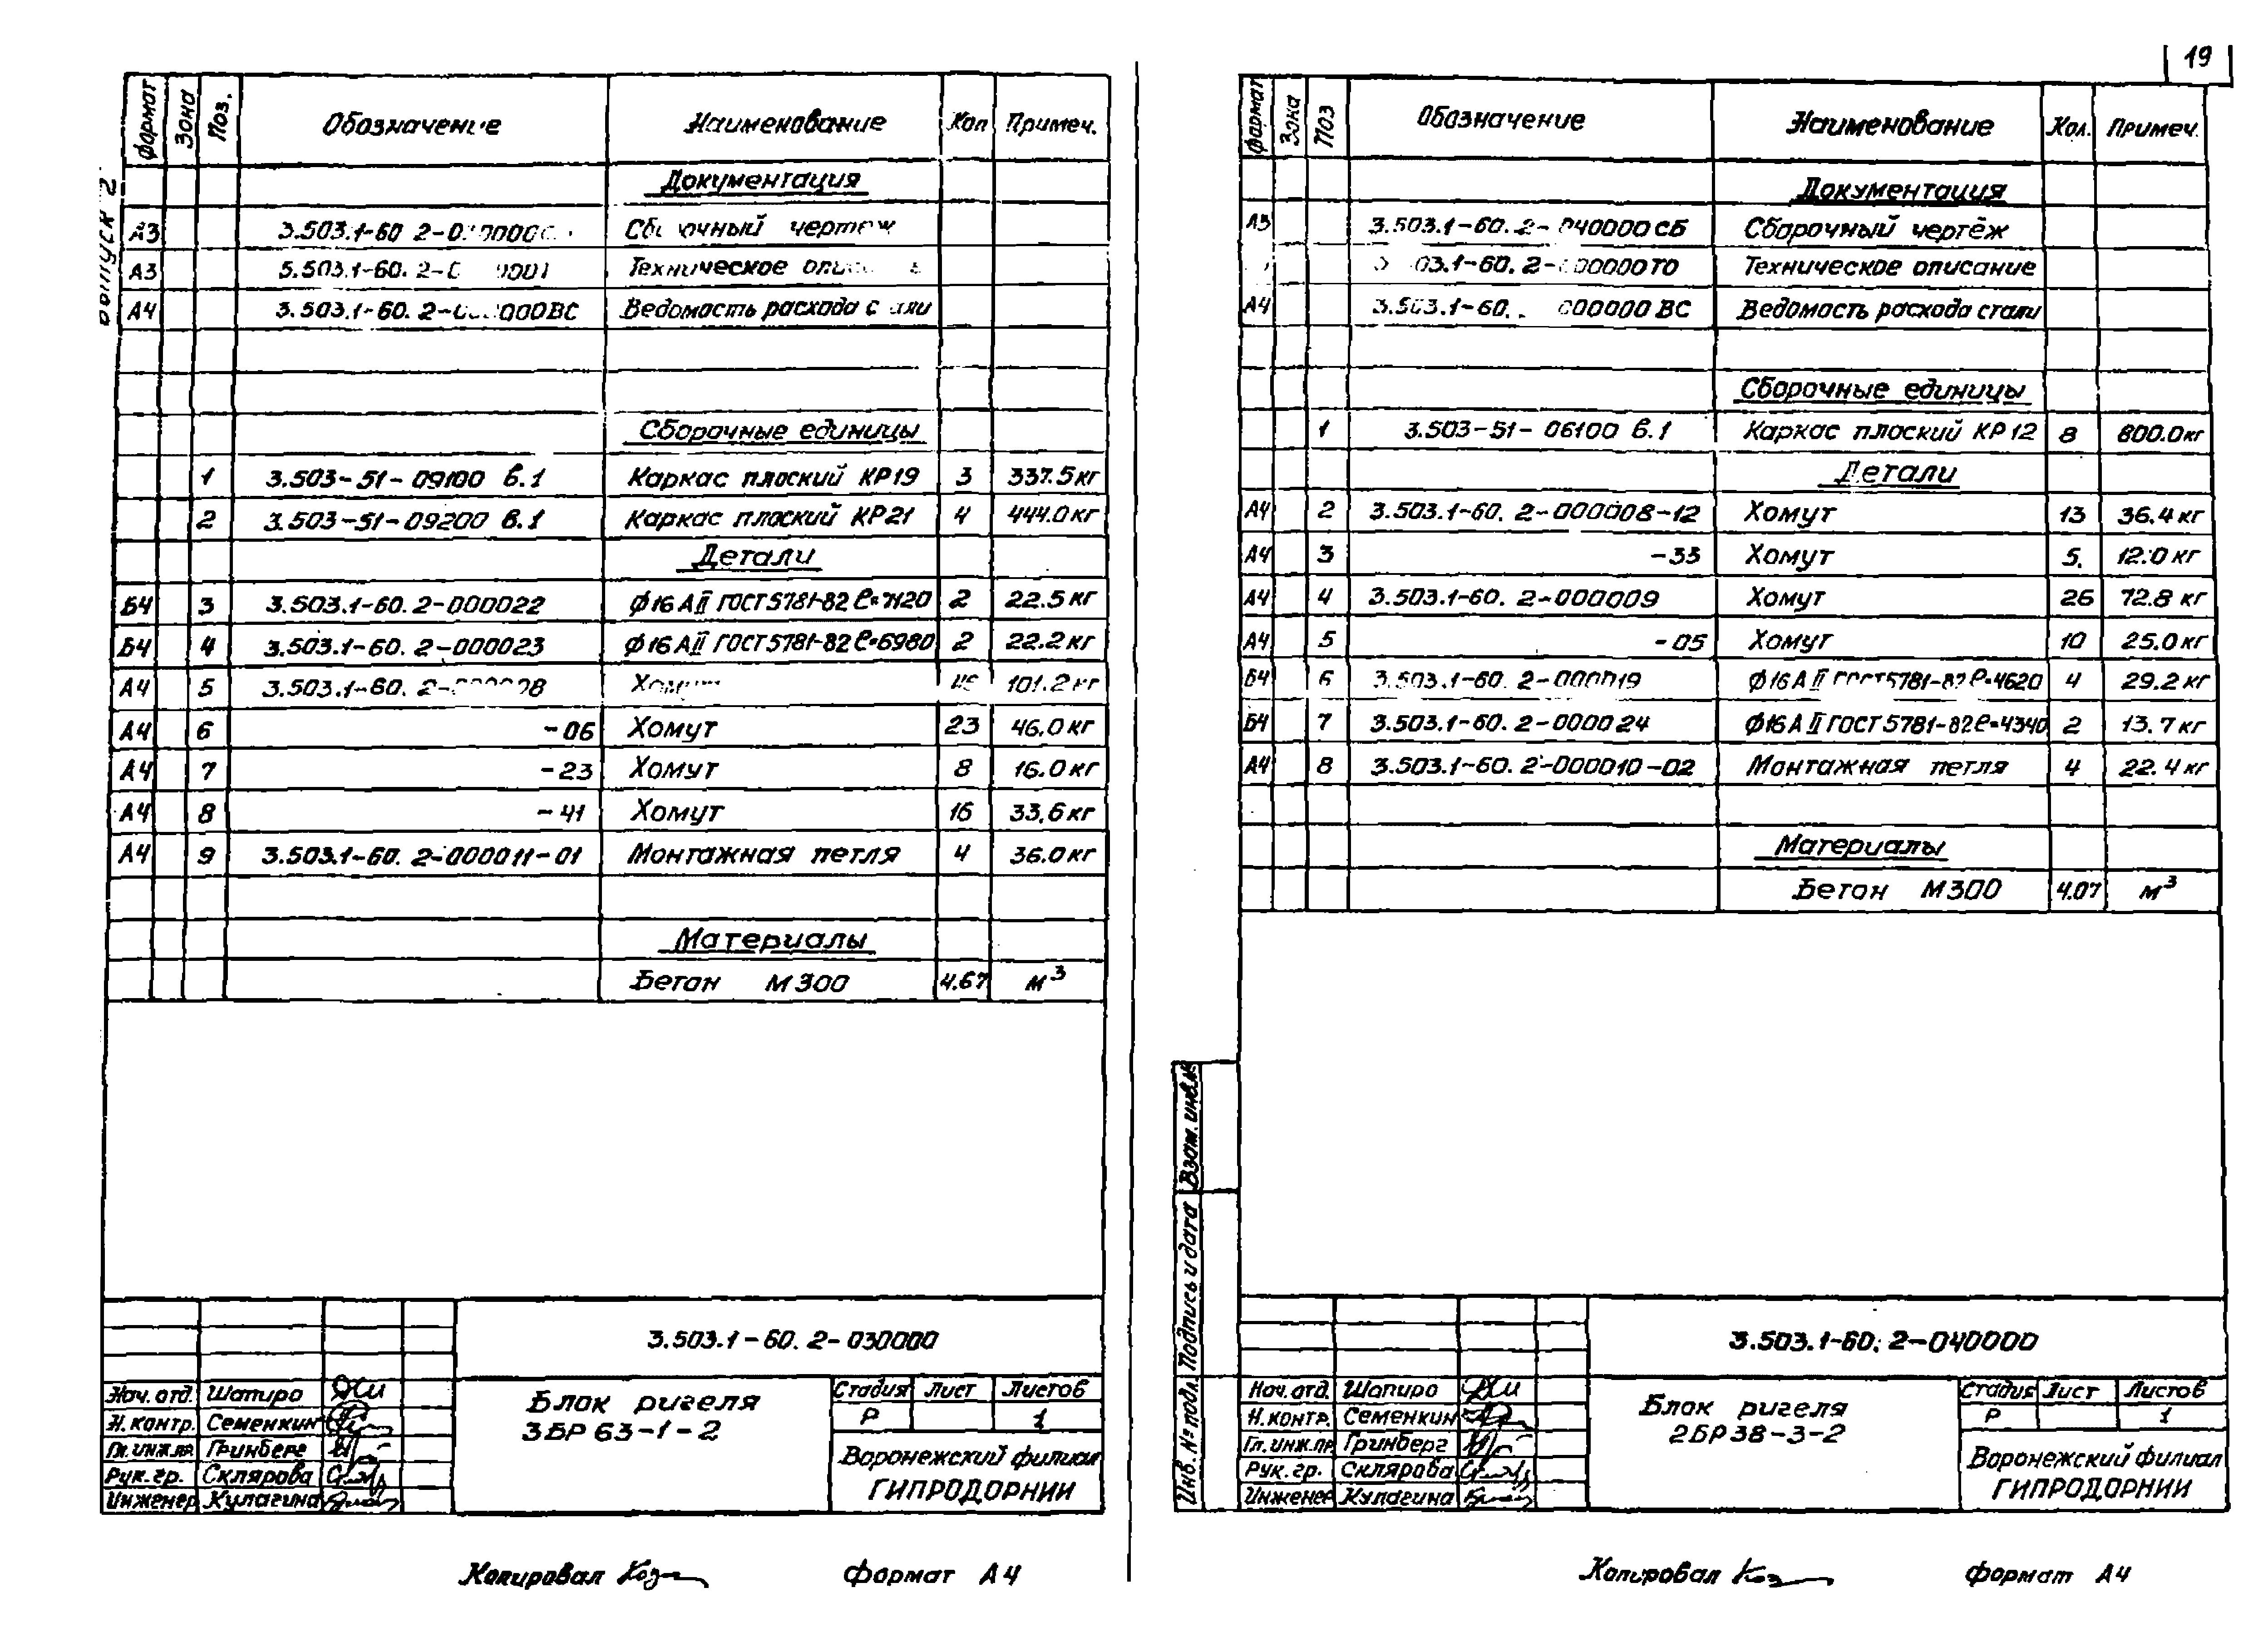 19
Выпуск 2
Формат Зона Поз. Обозначение Наименование Кол Примеч.
Документация
А3 Сборочный чертеж
А3 Техническое
А4 Ведомость расхода стали
Сборочные единицы
1 3.503-51-09100 в.1 Каркас плоский КР19 3 337.5кг
2 3.503-51-09200 в.1 Каркас плоский КР21 4 444.0кг
Детали
Б4 3 3.503.1-60. 2-000022 ф16АII ГОСТ5781-82 ℓ=7120 2 22.5кг
Б4 4 3.503.1-60. 2-000023 ф16АII ГОСТ5781-82 ℓ=6980 2 22.2кг
А4 5 Хомут 101.2кг
А4 6 -06 Хомут 23 46.0кг
А4 7 -23 Хомут 8 16.0кг
А4 8 -41 Хомут 16 33,6кг
А4 9 3.503.1-60. 2-000011-01 Монтажная петля 4 36.0кг
Материалы
Бетон М300 4.67 м³
3.503.1-60. 2-030000
Нач. отд. Шапиро
Н. контр. Семенкин
Гл. инж. пр. Гринберг
Рук. гр. Склярова
Инженер Кулагина
Блок ригеля
3БР63-1-2
Стадия Лист Листов
Р 1
Воронежский филиал
ГИПРОДОРНИИ
Копировал Формат А4
Формат Зона Поз Обозначение Наименование Кол. Примеч.
Документация
А3 3.503.1-60. 2-040000СБ Сборочный чертёж
Техническое описание
А4 Ведомость расхода стали
Сборочные единицы
1 3.503-51-06100 в.1 Каркас плоский КР12 8 800.0кг
Детали
А4 2 3.503.1-60. 2-000008-12 Хомут 13 36.4кг
А4 3 -33 Хомут 5. 12.0кг
А4 4 3.503.1-60. 2-000009 Хомут 26 72.8кг
А4 5 -05 Хомут 10 25.0кг
Б4 6 3.503.1-60. 2-000019 ф16АII ГОСТ5781-82 ℓ=4620 4 29.2кг
Б4 7 3.503.1-60. 2-000024 ф16АII ГОСТ5781-82 ℓ=4340 2 13.7кг
А4 8 3.503.1-60. 2-000010-02 Монтажная петля 4 22.4кг
Материалы
Бетон М300 4.07 м³
Взам. инв.№
Подпись и дата
Инв. № подл.
3.503.1-60. 2-040000
Нач. отд. Шапиро
Н. контр. Семенкин
Гл. инж. пр. Гринберг
Рук. гр. Склярова
Инженер Кулагина
Блок ригеля
2БР38-3-2
Стадия Лист Листов
Р 1
Воронежский филиал
ГИПРОДОРНИИ
Копировал Формат А4